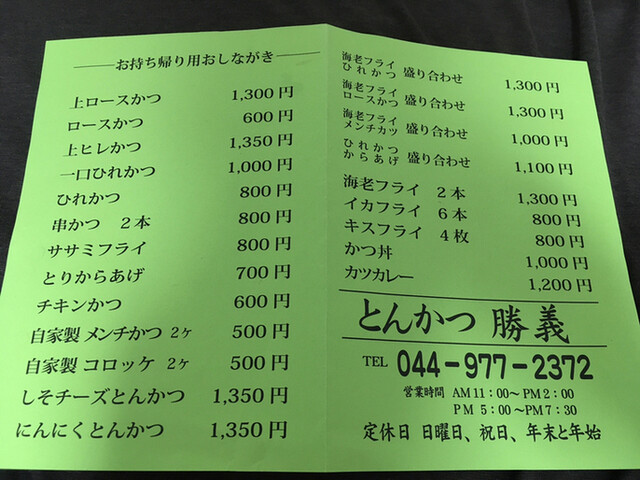 お持ち帰り用おしながき
上ロースかつ 1,300円
ロースかつ 600円
上ヒレかつ 1,350円
一口ひれかつ 1,000円
ひれかつ 800円
串かつ 2本 800円
ササミフライ 800円
とりからあげ 700円
チキンかつ 600円
自家製 メンチかつ 2ヶ 500円
自家製 コロッケ 2ヶ 500円
しそチーズとんかつ 1,350円
にんにくとんかつ 1,350円
海老フライ
ひれかつ 盛り合わせ 1,300円
海老フライ
ロースかつ 盛り合わせ 1,300円
海老フライ
メンチカツ 盛り合わせ 1,000円
ひれかつ
からあげ 盛り合わせ 1,100円
海老フライ 2本 1,300円
イカフライ 6本 800円
キスフライ 4枚 800円
かつ丼 1,000円
カツカレー 1,200円
とんかつ 勝義
TEL 044-977-2372
営業時間 AM11:00〜PM2:00
PM 5:00〜PM7:30
定休日 日曜日、祝日、年末と年始